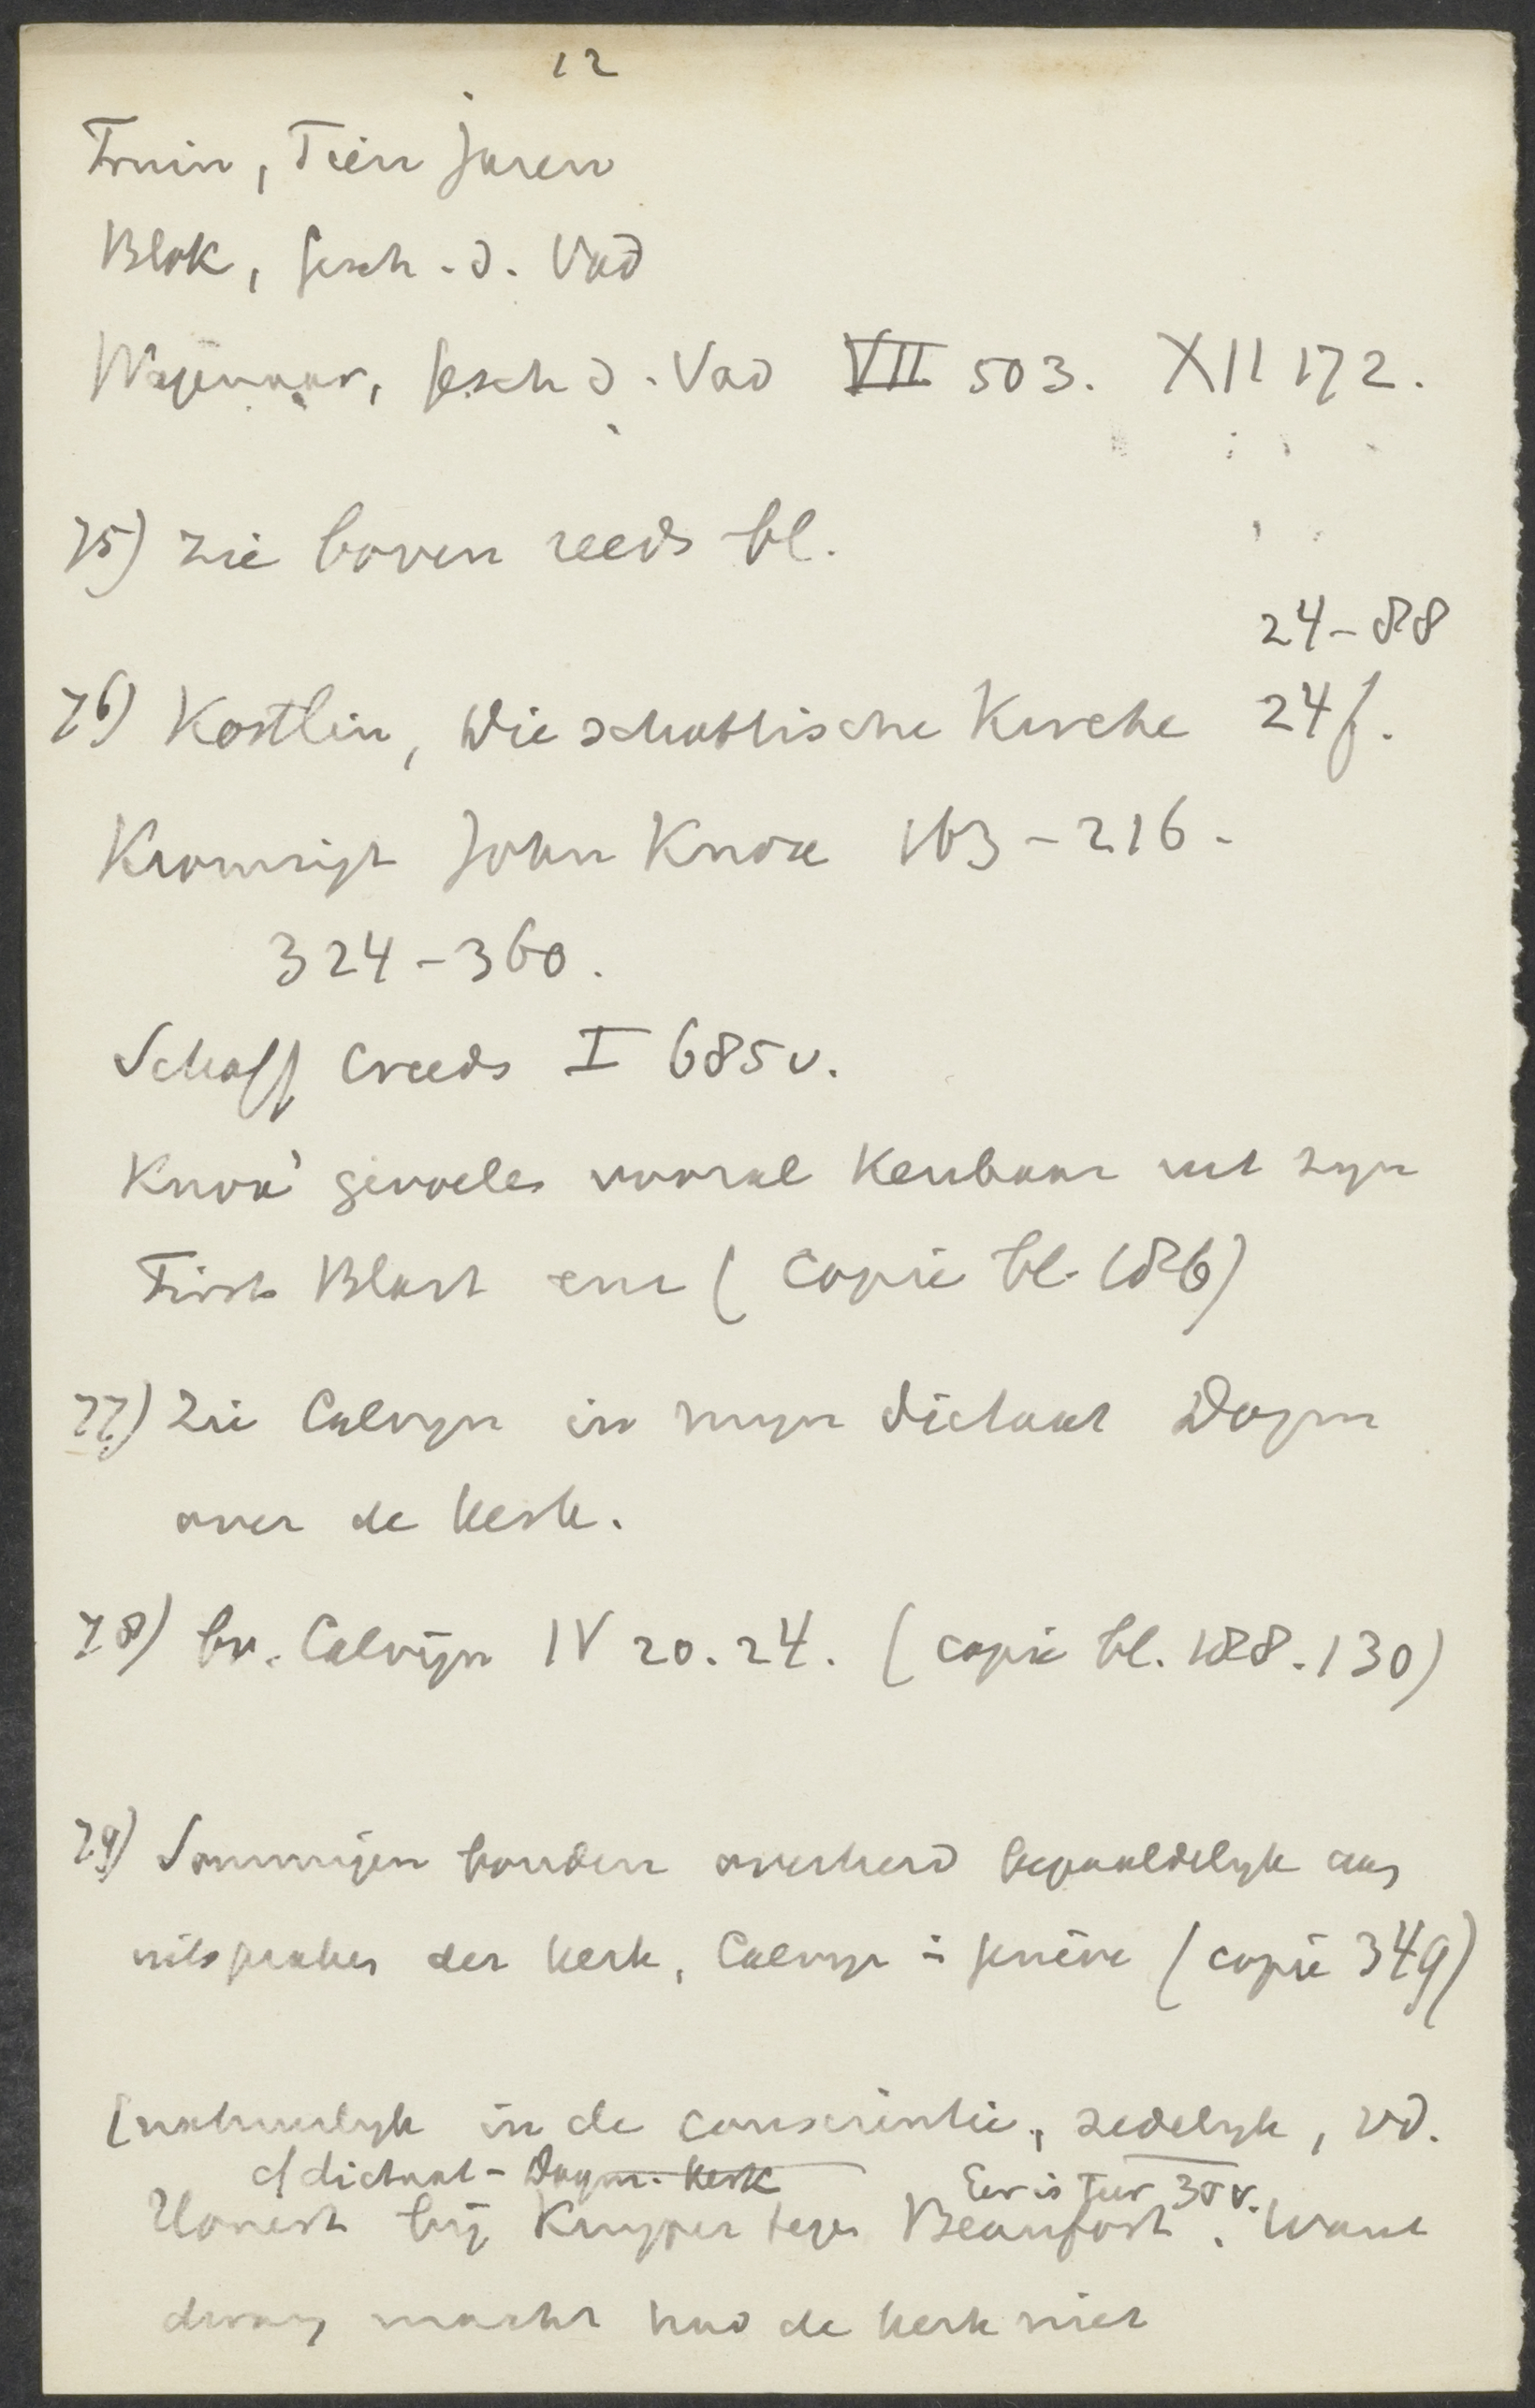 12
Fruin, Tien Jaren
Blok, Gesch. d. Vad
Wagenaar, Gesch d. Vad VII 503. XII 172.
75) zie boven reeds bl.
24-88
76) Kostlin, Die schottische Kirche 24f.
Kromsigt John Knox 163-216.
324-360.
Schaff Creeds I 685v.
Knox' gevoelen vooral kenbaar uit zijn
First Blast enz (copie bl. 186)
77) Zie Calvyn in myn dictaat Dogm
over de kerk.
78) bv. Calvijn IV 20.24. (copie bl. 188.130)
79) Sommigen bonden overheid bepaaldelyk aan
uitspraken der kerk, Calvyn in Genève (copie 349)
[natuurlyk in de conscientie, zedelyk, vd.
cf dictaat - Dogm. Kerk
Honert bij Kuyper tegen Beaufort. Want
Eer is Teer 35v.
dwang macht had de kerk niet